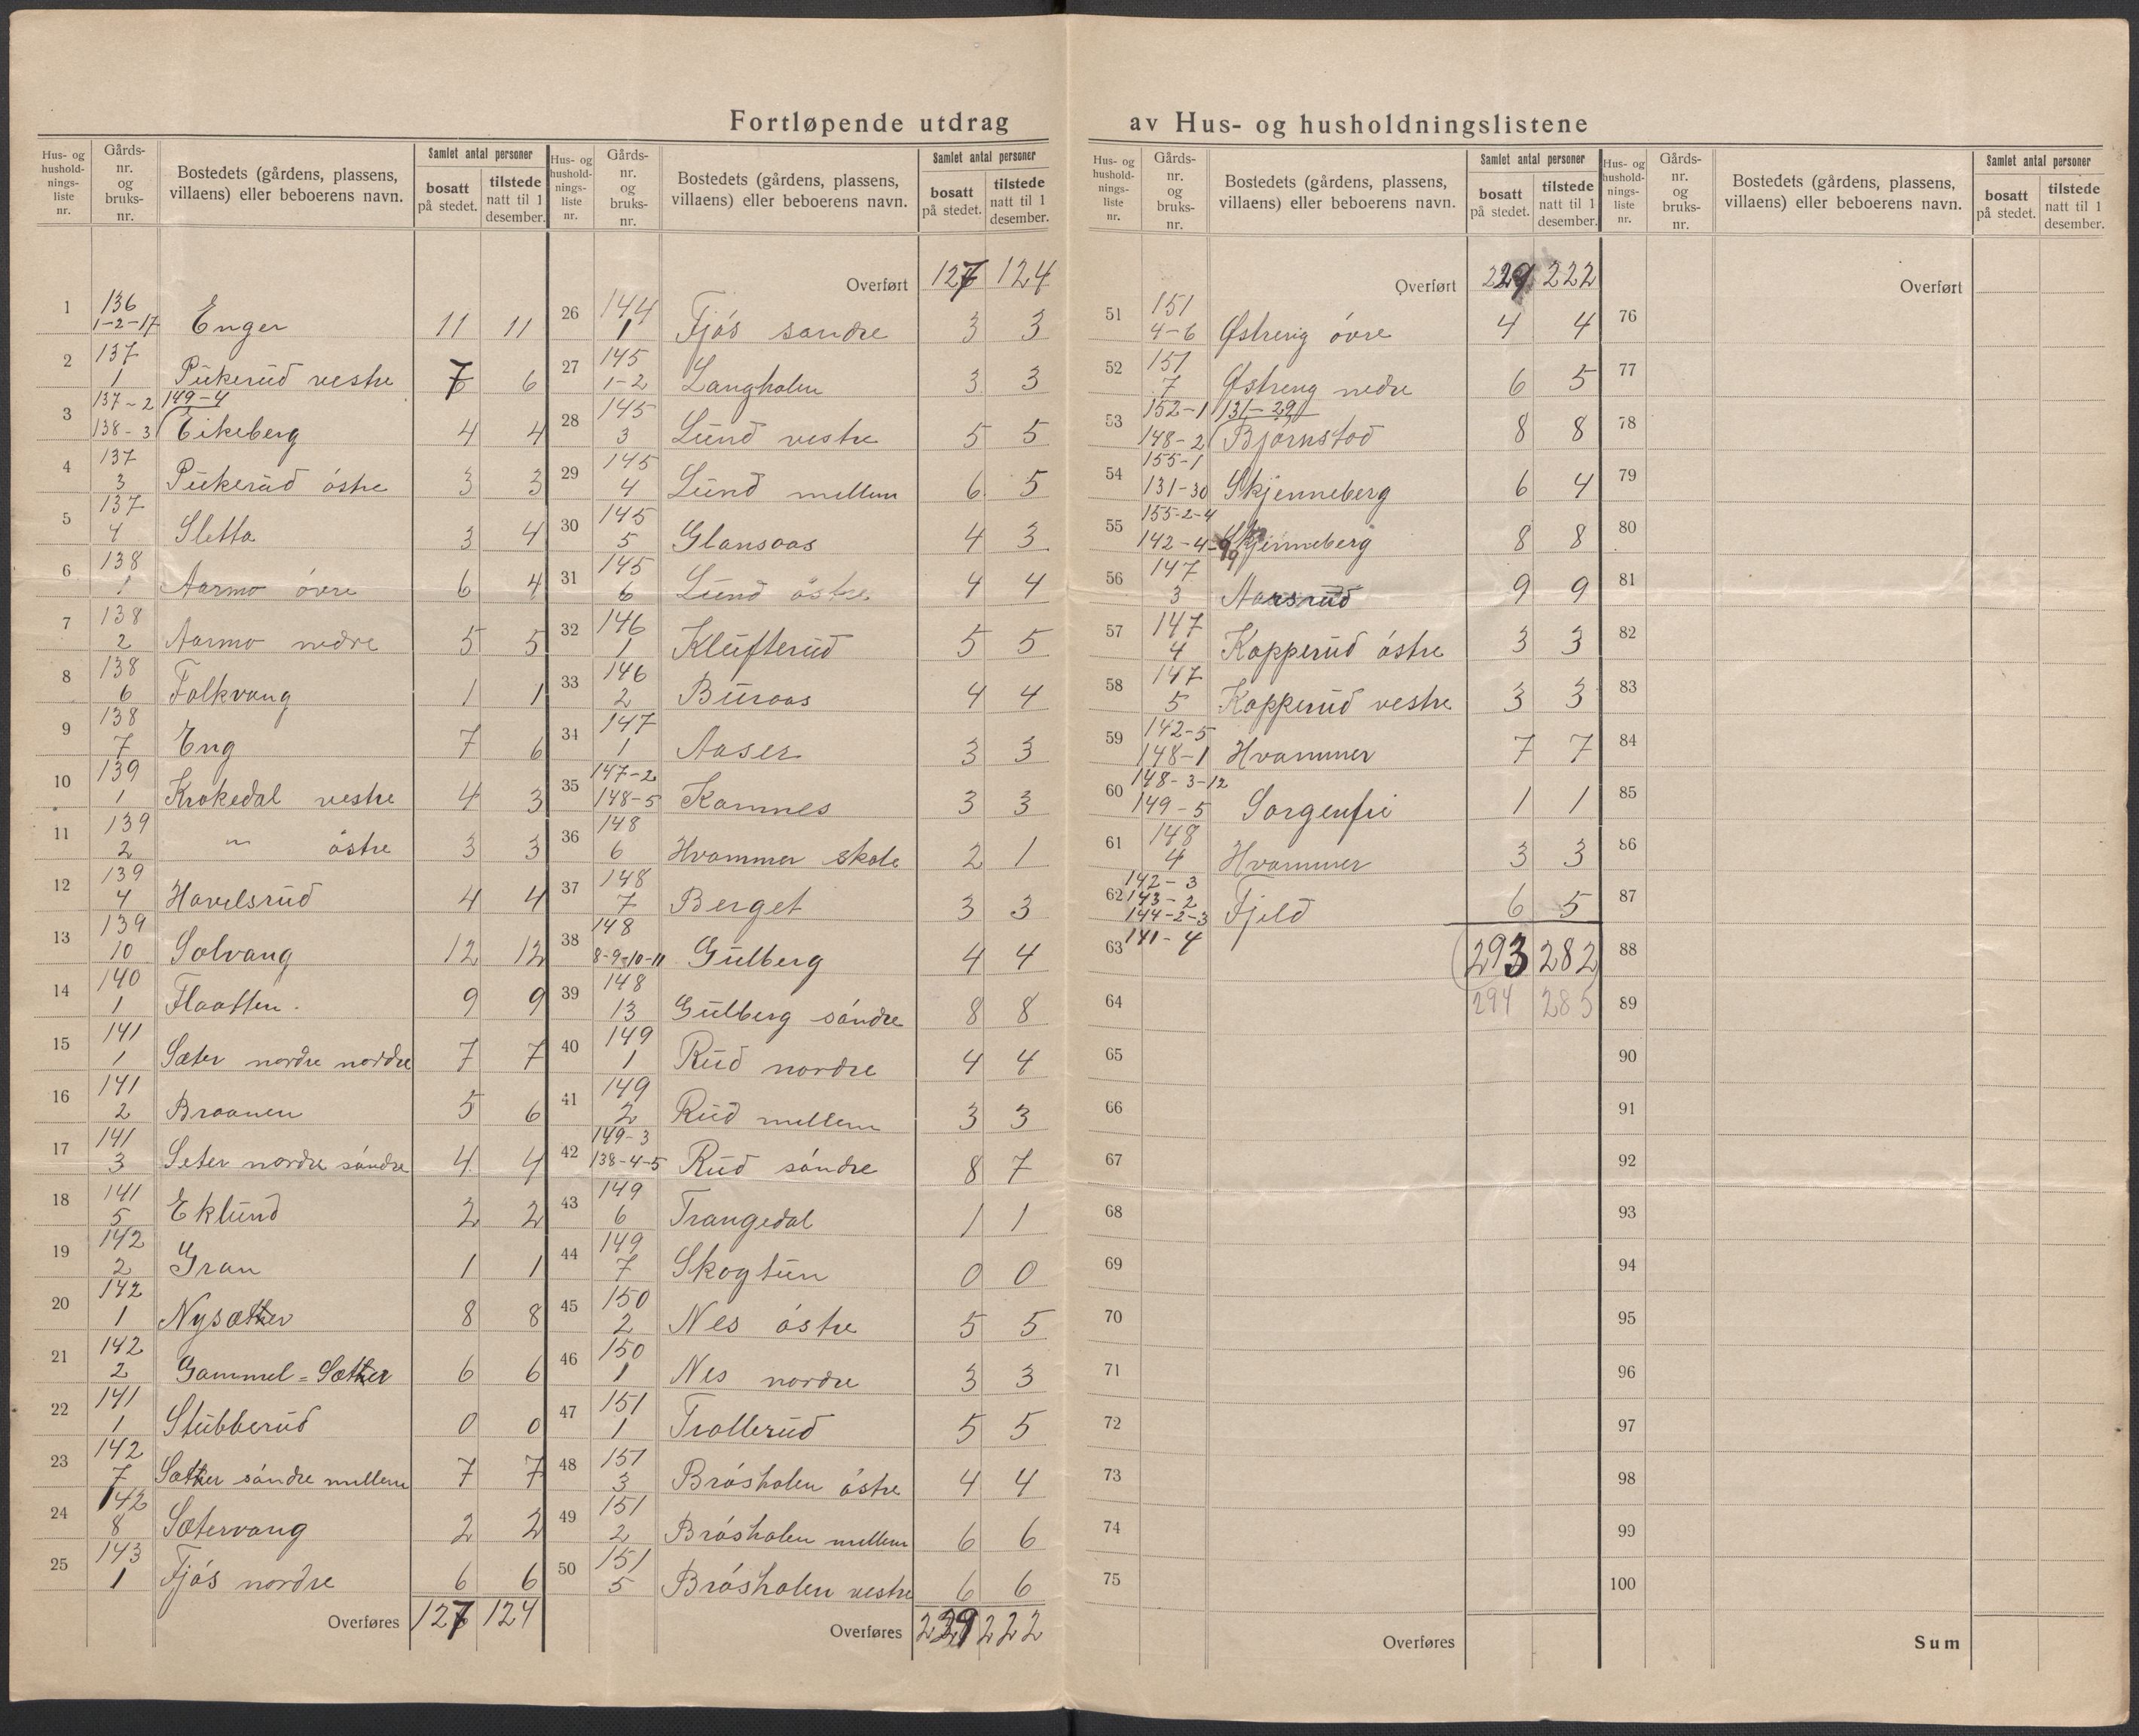 Fortløpende utdrag av Hus- og husholdningslistene
Hus- og hushold-nings-liste nr. | Gårds-nr. og bruks-nr. | Bostedets (gårdens, plassens, villaens) eller beboerens navn. | Samlet antal personer | bosatt på stedet. | tilstede natt til 1 desember.
1 | 136 1-2-17 | Enger | 11 | 11
2 | 137 1 | Pukerud vestre | 7 | 6
3 | 137-2 149-4 138-3 | Eikeberg | 4 | 4
4 | 137 3 | Pukerud østre | 3 | 3
5 | 137 4 | Sletta | 3 | 4
6 | 138 1 | Aarmo øvre | 6 | 4
7 | 138 2 | Aarmo nedre | 5 | 5
8 | 138 6 | Folkvang | 1 | 1
9 | 138 7 | Eng | 7 | 6
10 | 139 1 | Krokedal vestre | 4 | 3
11 | 139 2 | " østre | 3 | 3
12 | 139 4 | Havelsrud | 4 | 4
13 | 139 10 | Solvang | 12 | 12
14 | 140 1 | Flaatten. | 9 | 9
15 | 141 1 | Sæter nordre nordre | 7 | 7
16 | 141 2 | Braanen | 5 | 6
17 | 141 3 | Seter nordre søndre | 4 | 4
18 | 141 5 | Eklund | 2 | 2
19 | 142 2 | Gran | 1 | 1
20 | 142 1 | Nysæther | 8 | 8
21 | 142 2 | Gammel-Sæther | 6 | 6
22 | 141 1 | Stubberud | 0 | 0
23 | 142 7 | Sæther søndre mellem | 7 | 7
24 | 142 8 | Sætervang | 2 | 2
25 | 143 1 | Fjøs nordre | 6 | 6
Overføres | 127 | 124
Hus- og hushold-nings-liste nr. | Gårds-nr. og bruks-nr. | Bostedets (gårdens, plassens, villaens) eller beboerens navn. | Samlet antal personer | bosatt på stedet. | tilstede natt til 1 desember.
Overført | 127 | 124
26 | 144 1 | Fjøs søndre | 3 | 3
27 | 145 1-2 | Langholen | 3 | 3
28 | 145 3 | Lund vestre | 5 | 5
29 | 145 4 | Lund mellem | 6 | 5
30 | 145 5 | Glansaas | 4 | 3
31 | 145 6 | Lund østre | 4 | 4
32 | 146 1 | Klufterud | 5 | 5
33 | 146 2 | Buraas | 4 | 4
34 | 147 1 | Aaser | 3 | 3
35 | 147-2 148-5 | Kamnes | 3 | 3
36 | 148 6 | Hvammer skole | 2 | 1
37 | 148 7 | Berget | 3 | 3
38 | 148 8-9-10-11 | Gulberg | 4 | 4
39 | 148 13 | Gulberg søndre | 8 | 8
40 | 149 1 | Rud nordre | 4 | 4
41 | 149 2 | Rud mellem | 3 | 3
42 | 149-3 138-4-5 | Rud søndre | 8 | 7
43 | 149 6 | Trangedal | 1 | 1
44 | 149 7 | Skogtun | 0 | 0
45 | 150 2 | Nes østre | 5 | 5
46 | 150 1 | Nes nordre | 3 | 3
47 | 151 1 | Trollerud | 5 | 5
48 | 151 3 | Brøsholen østre | 4 | 4
49 | 151 2 | Brøsholen mellem | 6 | 6
50 | 151 5 | Brøsholen vestre | 6 | 6
Overføres | 229 | 222
Hus- og hushold-nings-liste nr. | Gårds-nr. og bruks-nr. | Bostedets (gårdens, plassens, villaens) eller beboerens navn. | Samlet antal personer | bosatt på stedet. | tilstede natt til 1 desember.
Overført | 229 | 222
51 | 151 4-6 | Østreng øvre | 4 | 4
52 | 151 7 | Østreng nedre | 6 | 5
53 | 152-1 131-29 148-2 | Bjørnstad | 8 | 8
54 | 155-1 131-30 | Skjenneberg | 6 | 4
55 | 155-2-4 142-4-9 | Skjenneberg | 8 | 8
56 | 147 3 | Aarsrud | 9 | 9
57 | 147 4 | Kopperud østre | 3 | 3
58 | 147 5 | Kopperud vestre | 3 | 3
59 | 142-5 148-1 | Hvammer | 7 | 7
60 | 148-3-12 149-5 | Sorgenfri | 1 | 1
61 | 148 4 | Hvammer | 3 | 3
62 | 142-3 143-2 144-2-3 | Fjeld | 6 | 5
63 | 141-4 | 293 | 282
64 | 294 | 285
65
66
67
68
69
70
71
72
73
74
75
Overføres
Hus- og hushold-nings-liste nr. | Gårds-nr. og bruks-nr. | Bostedets (gårdens, plassens, villaens) eller beboerens navn. | Samlet antal personer | bosatt på stedet. | tilstede natt til 1 desember.
Overført
76
77
78
79
80
81
82
83
84
85
86
87
88
89
90
91
92
93
94
95
96
97
98
99
100
Sum